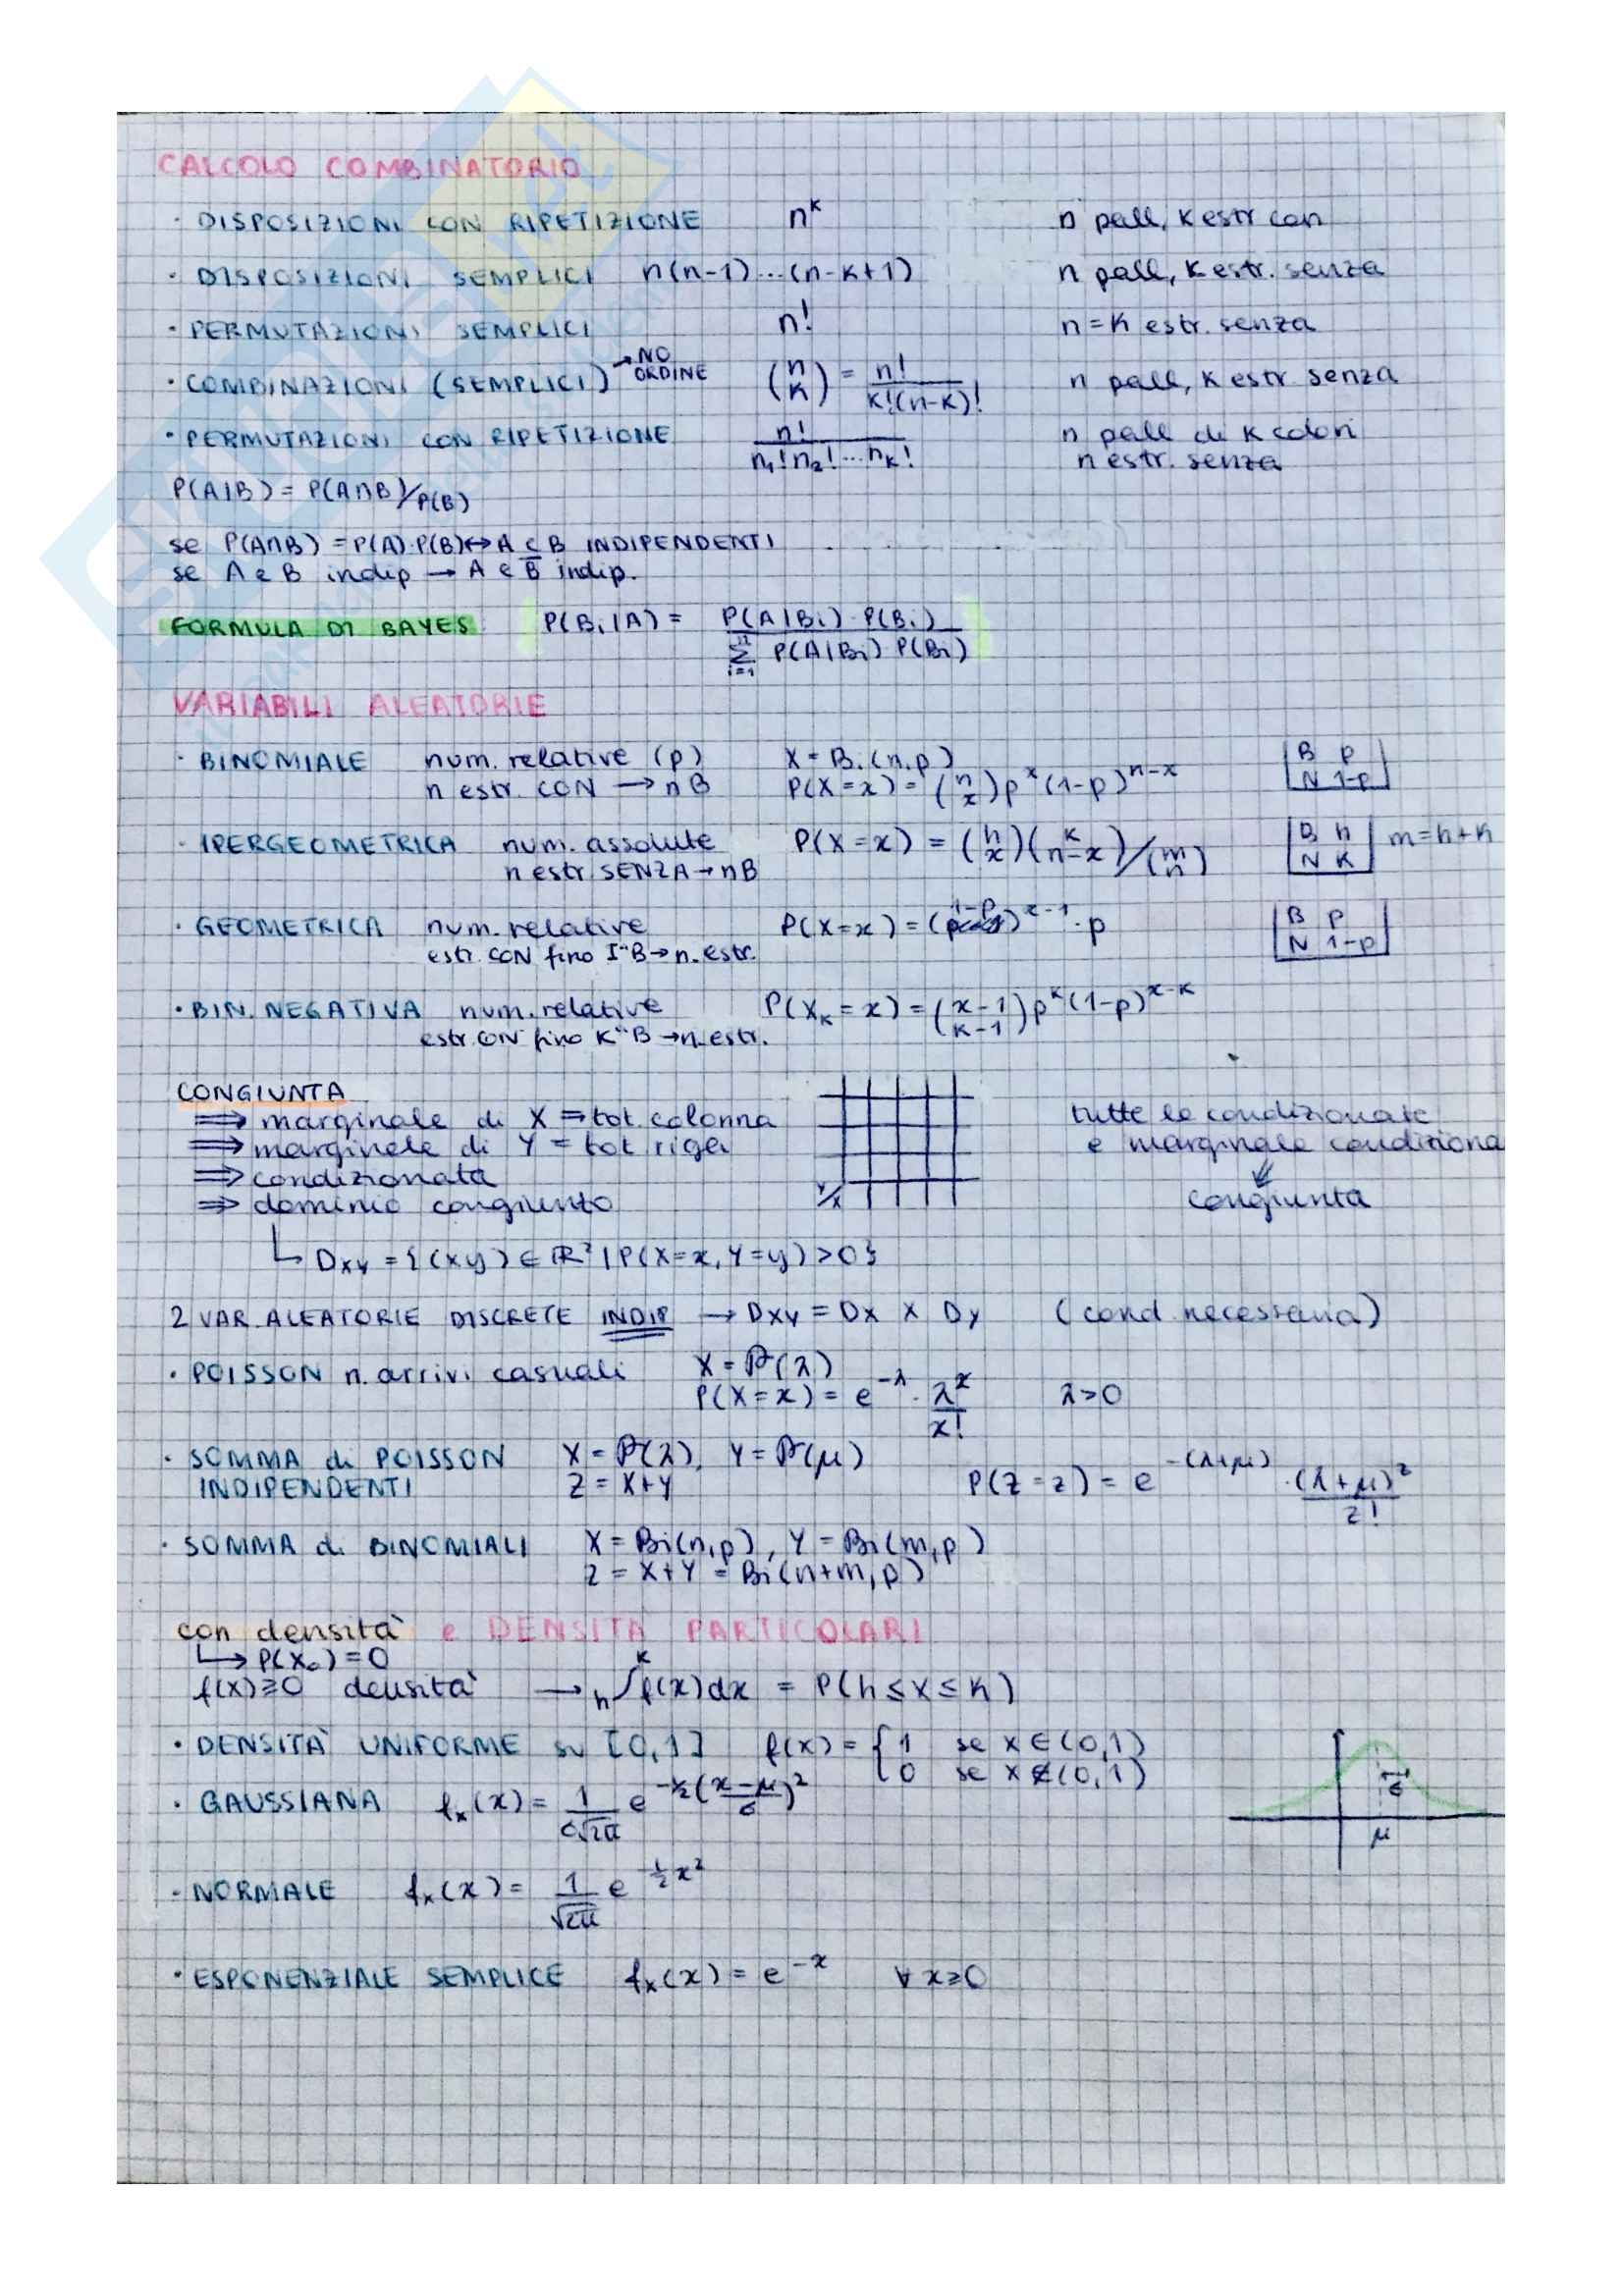 CALCOLO COMBINATORIO
· DISPOSIZIONI CON RIPETIZIONE n^k n pall, k estr con
· DISPOSIZIONI SEMPLICI n(n-1)...(n-k+1) n pall, k estr. senza
· PERMUTAZIONI SEMPLICI n! n=k estr. senza
· COMBINAZIONI (SEMPLICI) → NO ORDINE (n k) = n!/k!(n-k)! n pall, k estr senza
· PERMUTAZIONI CON RIPETIZIONE n!/n₁!n₂!...n_k! n pall di k colori
n estr. senza
P(A|B) = P(A∩B)/P(B)
se P(A∩B) = P(A)·P(B) ↔ A e B INDIPENDENTI
se A e B indip → A e B̅ indip.
FORMULA DI BAYES P(Bi|A) = P(A|Bi)·P(Bi) / Σ_{i=1}^{n} P(A|Bi) P(Bi)
VARIABILI ALEATORIE
· BINOMIALE num. relative (p) X = Bi(n,p) B p
n estr. CON → nB P(X=x) = (n x) p^x (1-p)^{n-x} N 1-p
· IPERGEOMETRICA num. assolute P(X=x) = (h x)(k n-x)/(m n) B h m=h+k
n estr. SENZA → nB N K
· GEOMETRICA num. relative P(X=x) = (1-p)^{x-1}·p B p
estr. CON fino I°B → n. estr. N 1-p
· BIN. NEGATIVA num. relative P(X_k=x) = (x-1 k-1) p^k (1-p)^{x-k}
estr. CON fino K°B → n. estr.
CONGIUNTA
⇒ marginale di X = tot. colonna tutte le condizionate
⇒ marginale di Y = tot riga e marginale condiziona
⇒ condizionata
⇒ dominio congiunto Y/X congiunta
↳ D_XY = {(xy) ∈ ℝ² | P(X=x, Y=y) > 0}
2 VAR. ALEATORIE DISCRETE INDIP → D_XY = Dx × Dy (cond. necessaria)
· POISSON n. arrivi casuali X = P(λ)
P(X=x) = e^{-λ} · λ^x/x! λ>0
· SOMMA di POISSON X = P(λ), Y = P(μ)
INDIPENDENTI Z = X+Y P(Z=z) = e^{-(λ+μ)} · (λ+μ)^z/z!
· SOMMA di BINOMIALI X = Bi(n,p), Y = Bi(m,p)
Z = X+Y = Bi(n+m,p)
con densità e DENSITÀ PARTICOLARI
↳ P(X₀) = 0
f(x) ≥ 0 densità → _h∫^k f(x)dx = P(h≤X≤k)
· DENSITÀ UNIFORME su [0,1] f(x) = { 1 se x ∈ (0,1)
0 se x ∉ (0,1)
· GAUSSIANA f_x(x) = 1/σ√2π e^{-½(x-μ/σ)²} σ
μ
· NORMALE f_x(x) = 1/√2π e^{-½x²}
· ESPONENZIALE SEMPLICE f_x(x) = e^{-x} ∀ x≥0